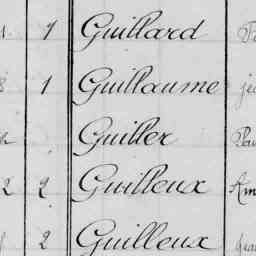 1 Guillard
1 Guillaume
Guiller
2 2 Guilleux
2 Guilleux